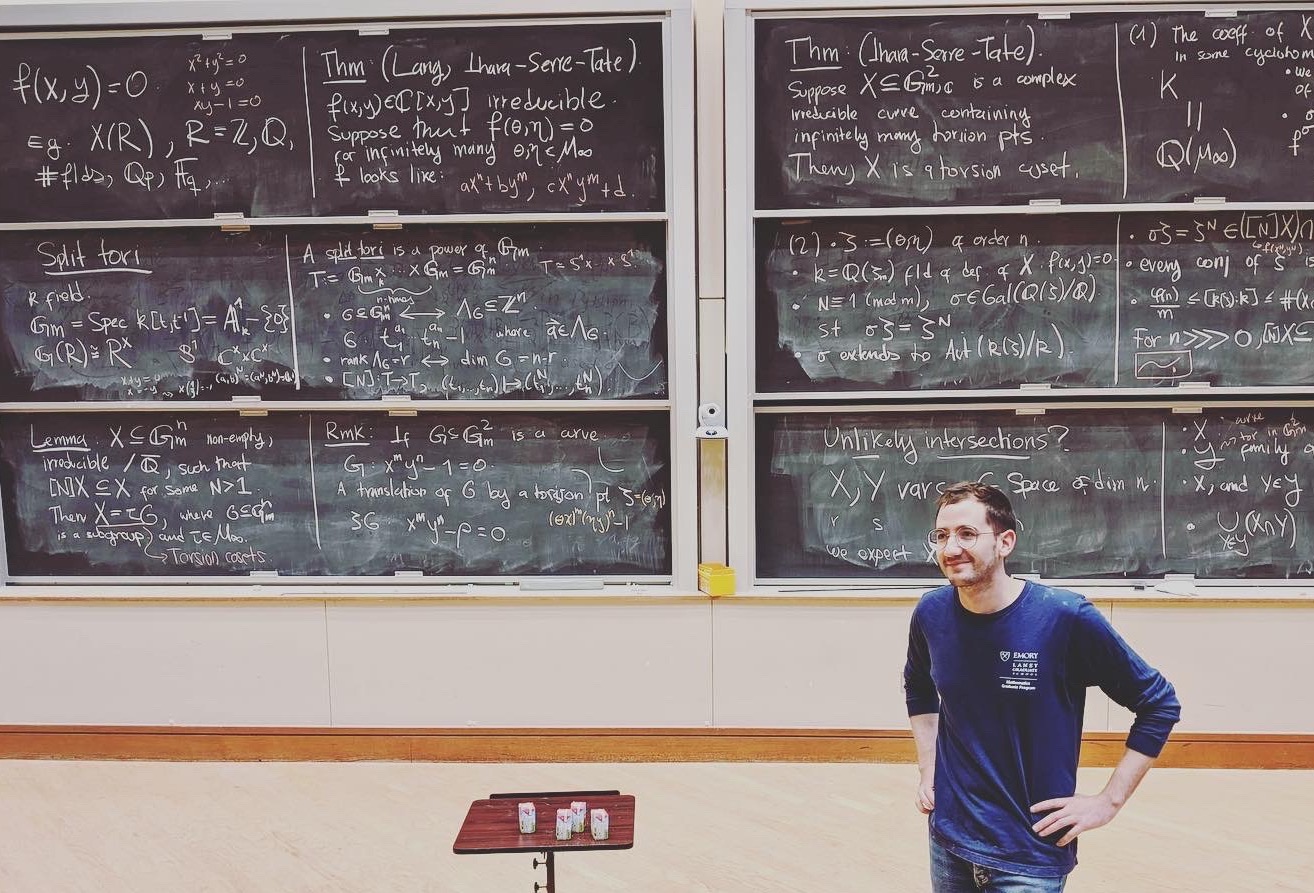 f(x,y)=0.
x²+y²=0
x+y=0
xy-1=0
Eg. X(R), R=ℤ,ℚ,
#flds, ℚp, F̅q,...
Thm: (Lang, Ihara-Serre-Tate).
f(x,y)∈ℂ[x,y] irreducible.
Suppose that f(θ,η)=0
for infinitely many θ,η∈μ∞
f looks like:
axⁿ+byᵐ, cxⁿyᵐ+d.
Split tori
k field.
𝔾m = Spec k[t,t⁻¹] = 𝔸¹k-{0}
𝔾(R)≅R^x S¹ ℂ^x×ℂ^x
A split tori is a power of 𝔾m
T=𝔾m×...×𝔾m=𝔾mⁿ T=S¹×...×S¹
n-times
• G≤𝔾mⁿ ⟷ Λ_G≤ℤⁿ
G: t₁^a₁...tₙ^aₙ-1 where a⃗∈Λ_G.
• rank Λ_G=r ⟷ dim G=n-r.
• [N]:T→T, (t₁,...,tₙ)↦(t₁^N,...,tₙ^N)
Lemma: X⊆𝔾mⁿ non-empty,
irreducible /ℚ̅, such that
[N]X⊆X for some N>1.
Then X=τG, where G≤𝔾mⁿ
is a subgroup and τ∈μ∞.
→Torsion cosets
Rmk: If G≤𝔾m² is a curve
G: xᵐyⁿ-1=0.
A translation of G by a torsion pt ζ=(θ,η)
(θx)ᵐ(ηy)ⁿ-1
ζG xᵐyⁿ-ρ=0.
Thm: (Ihara-Serre-Tate).
Suppose X⊆𝔾²m,ℂ is a complex
irreducible curve containing
infinitely many torsion pts.
Then, X is a torsion coset.
(1) The coeff of X
in some cyclotom
K
||
ℚ(μ∞)
• we
of
(2) • ζ:=(θ,η) of order n.
• k=ℚ(ζm) fld of def of X. f(x,y)=0
• N≡1 (mod m), σ∈Gal(ℚ(ζ)/ℚ)
st σζ=ζ^N
• σ extends to Aut(k(ζ)/k).
• σζ=ζ^N∈([N]X)∩
• every conj of ζ is
• φ(n)/m ≤ [k(ζ):k] ≤ #(
For n>>>0, [N]X⊆
Unlikely intersections?
X, Y vars
Space of dim n.
r s
we expect
• X
Y family
• X, and Y∈𝒴
• ∪(X∩Y)
Y∈𝒴
EMORY
LANEY
GRADUATE
SCHOOL
Mathematics
Graduate Program